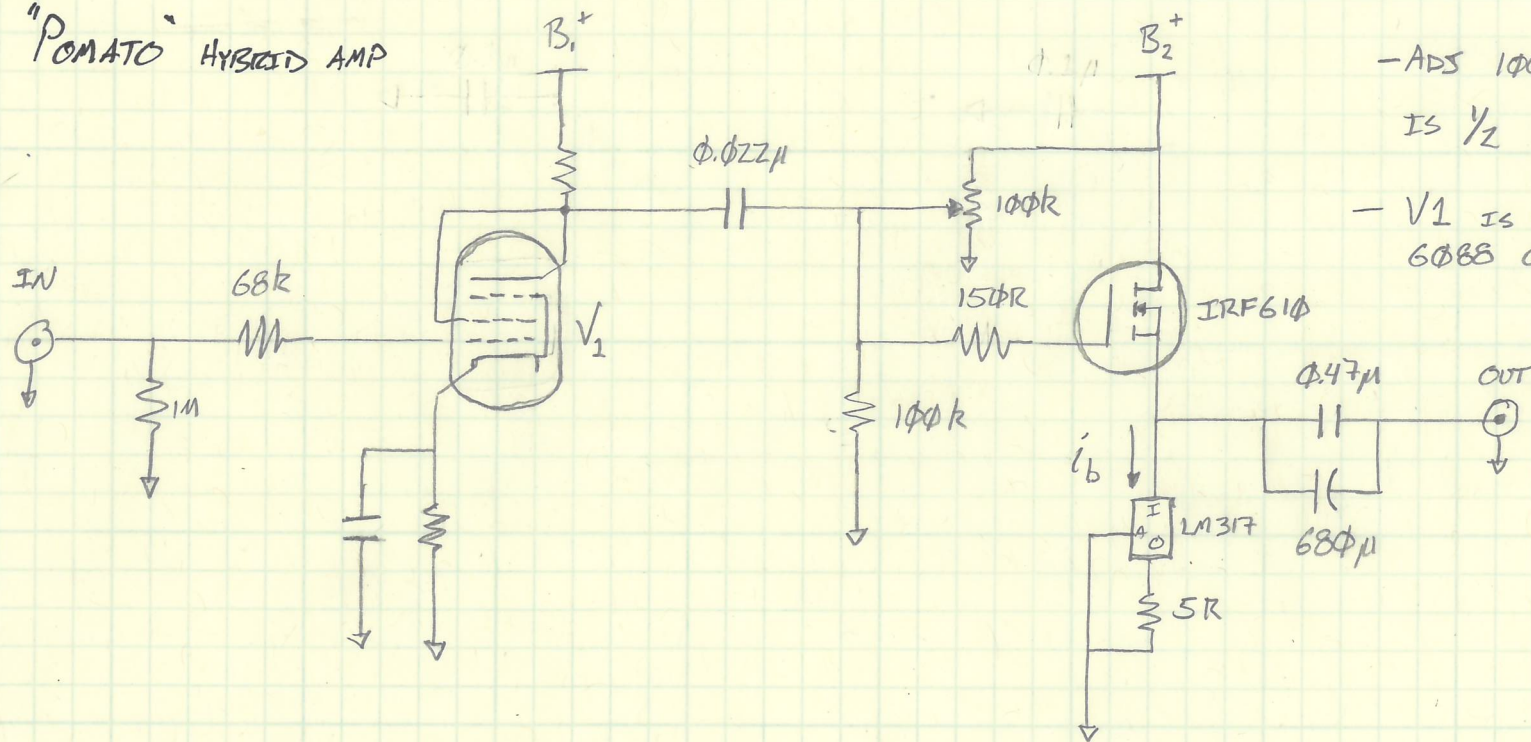 "POMATO" HYBRID AMP
B₁⁺
B₂⁺
- ADJ 100
IS 1/2
- V1 IS
6088
0.022µ
100k
IN
68k
V₁
150R
IRF610
1M
100k
0.47µ
OUT
i_b
I
A
O
LM317
680µ
5R